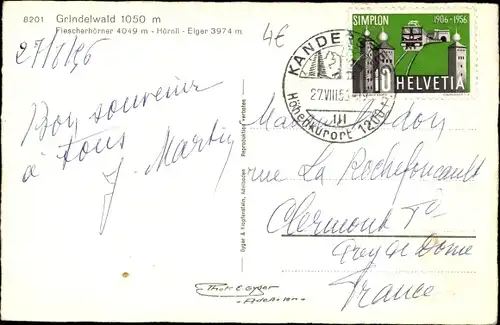 8201 Grindelwald 1050 m
Fiescherhörner 4049 m - Hörnli - Eiger 3974 m
4€
27/8/56
Bon souvenir
à Tous
J. Martin
Gyger & Klopfenstein, Adelboden Reproduktion verboten
Phot. E. Gyger
- Adelboden -
KANDE
27.VIII.56
III
Höhenkurort 1200
SIMPLON 1906-1956
10 HELVETIA
rue La Rochefoucault
Clermont Fd
Puy de Dome
France